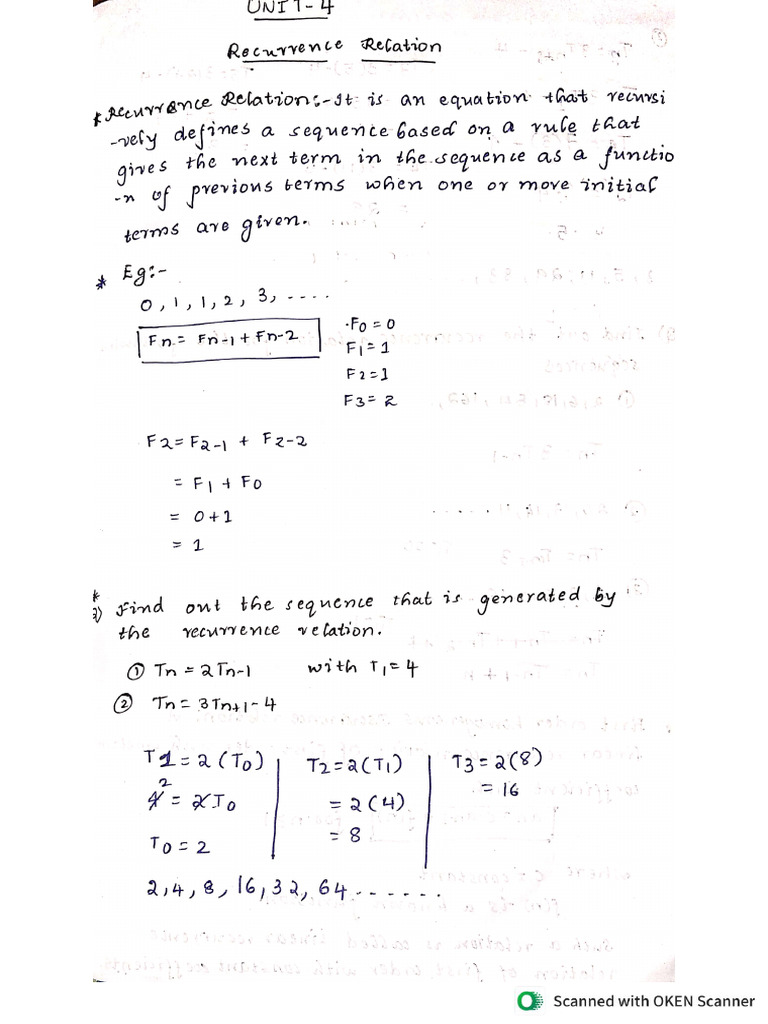 UNIT-4
Recurrence Relation
* Recurrence Relation:- It is an equation that recursi
-vely defines a sequence based on a rule that
gives the next term in the sequence as a functio
-n of previous terms when one or more initial
terms are given.
* Eg:-
0, 1, 1, 2, 3, ....
Fn = Fn-1 + Fn-2
F0 = 0
F1 = 1
F2 = 1
F3 = 2
F2 = F2-1 + F2-2
= F1 + F0
= 0+1
= 1
* Find out the sequence that is generated by
the recurrence relation.
① Tn = 2Tn-1 with T1 = 4
② Tn = 3Tn+1 - 4
T1 = 2(T0)
4 2 = 2T0
T0 = 2
T2 = 2(T1)
= 2(4)
= 8
T3 = 2(8)
= 16
2, 4, 8, 16, 32, 64 .......
Scanned with OKEN Scanner